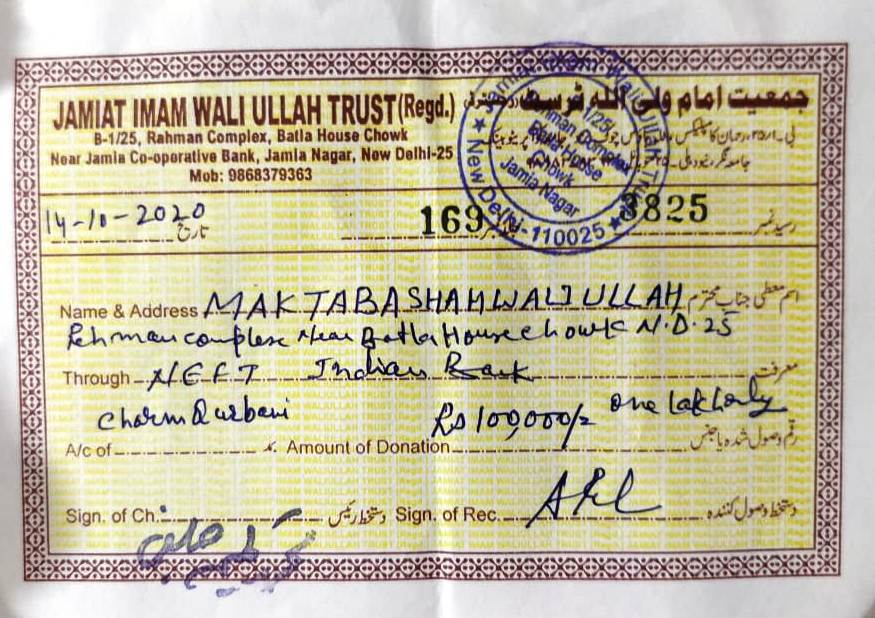 JAMIAT IMAM WALI ULLAH TRUST (Regd.)
جمعیت امام ولی الله ٹرسٹ
B-1/25, Rahman Complex, Batla House Chowk
Near Jamia Co-operative Bank, Jamia Nagar, New Delhi-25
Mob: 9868379363
Jamiat Imam Wali Ullah Trust
★ New Delhi-110025 ★
1/25,
Rahman Complex
Batla House
Chowk
Jamia Nagar
14-10-2020 تاریخ
169
3825 رسید نمبر
Name & Address MAKTABA SHAH WALI ULLAH اسم معطی جناب محترم
Rehman complex Near Batla House chowk N.D. 25
Through NEFT Indian Bank معرفت
Charm Qurbani Rs 100,000/= one lakh only
A/c of Amount of Donation رقم وصول شدہ یا جنس
Sign. of Ch. دستخط رئیس Sign. of Rec. دستخط وصول کنندہ